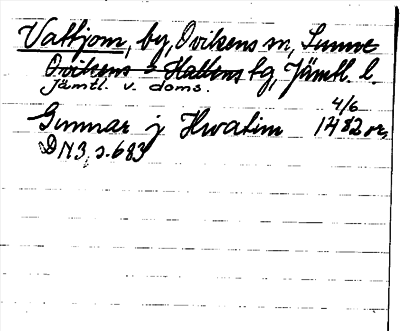 Vattjom, by, Ovikens sn, Sunne
Ovikens o Hallens tg, Jämtl. l.
Jämtl. v. doms.
4/6
Gunnar j Hwatim 1482 or.
DN3, s. 683